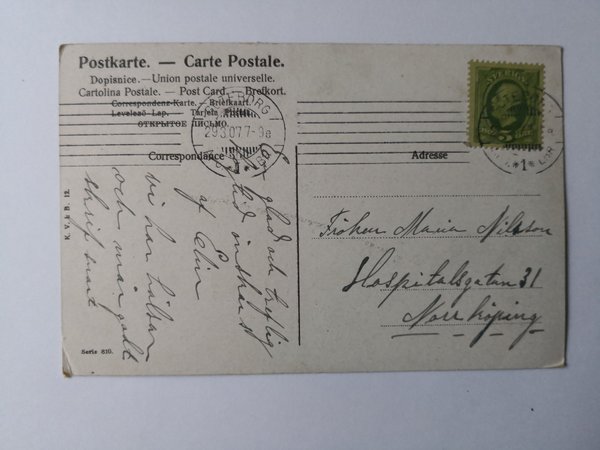 Postkarte. — Carte Postale.
Dopisnice.—Union postale universelle.
Cartolina Postale. — Post Card. — Brefkort.
Correspondenz-Karte. — Briefkaart.
Levelező Lap. — Tarjeta
ОТКРЫТОЕ ПИСЬМО.
GÖTEBORG
29.3.07. 7-9
1
SVERIGE
5
1
Correspondance
Adresse
Fröken Maria Nilsson
Hospitalsgatan 31
Norrköping
glad och treflig
önskar
af Elin
vi har hälsan
och mår godt
skrif snart
K. V. & B. 12.
Serie 810.